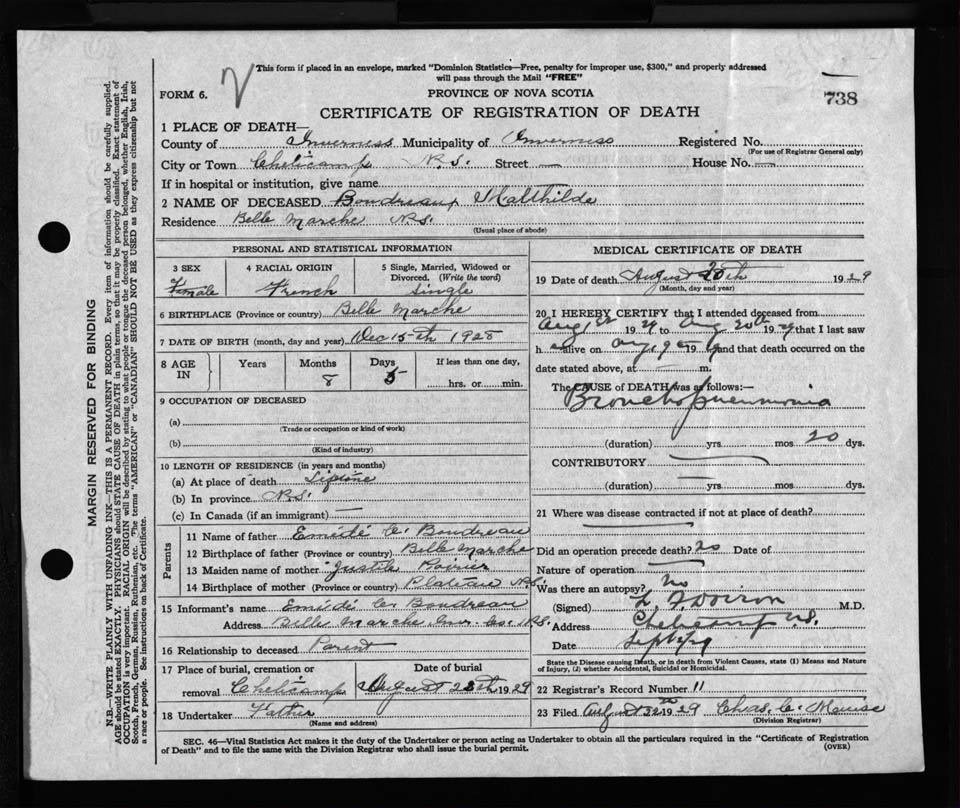 This form if placed in an envelope, marked "Dominion Statistics—Free, penalty for improper use, $300," and properly addressed
will pass through the Mail "FREE"
FORM 6.
PROVINCE OF NOVA SCOTIA
738
CERTIFICATE OF REGISTRATION OF DEATH
1 PLACE OF DEATH—
County of Inverness Municipality of Inverness Registered No.
(For use of Registrar General only)
City or Town Cheticamp N.S. Street — House No. —
If in hospital or institution, give name
2 NAME OF DECEASED Boudreau, Malthilde
Residence Belle Marche N.S.
(Usual place of abode)
PERSONAL AND STATISTICAL INFORMATION
3 SEX 4 RACIAL ORIGIN 5 Single, Married, Widowed or
Divorced. (Write the word)
Female French Single
6 BIRTHPLACE (Province or country) Belle Marche
7 DATE OF BIRTH (month, day and year) Dec 15th 1928
8 AGE IN Years Months Days If less than one day,
8 5 hrs. or min.
9 OCCUPATION OF DECEASED
(a)
(Trade or occupation or kind of work)
(b)
(Kind of industry)
10 LENGTH OF RESIDENCE (in years and months)
(a) At place of death Liftime
(b) In province N.S.
(c) In Canada (if an immigrant) —
Parents
11 Name of father Emidi C. Boudreau
12 Birthplace of father (Province or country) Belle Marche
13 Maiden name of mother Justile Poirier
14 Birthplace of mother (Province or country) Plateau N.S.
15 Informant's name Emidi C. Boudreau
Address Belle Marche Inv. Co. N.S.
16 Relationship to deceased Parent
17 Place of burial, cremation or Date of burial
removal Cheticamp August 23th 1929
18 Undertaker Father
(Name and address)
MEDICAL CERTIFICATE OF DEATH
19 Date of death August 20th 1929
(Month, day and year)
20 I HEREBY CERTIFY that I attended deceased from
Aug 1st 1929 to Aug 20th 1929 that I last saw
h alive on Aug 19 and that death occurred on the
date stated above, at — m.
The CAUSE OF DEATH was as follows:—
Bronchopneumonia
(duration) yrs. mos 20 dys.
CONTRIBUTORY
(duration) yrs. mos dys.
21 Where was disease contracted if not at place of death?
Did an operation precede death? no Date of
Nature of operation
Was there an autopsy? No
(Signed) L. F. Doiron M.D.
Address Cheticamp N.S.
Date Sept
State the Disease causing Death, or in death from Violent Causes, state (1) Means and Nature
of Injury, (2) whether Accidental, Suicidal or Homicidal.
22 Registrar's Record Number 11
23 Filed August 22 1929 Chas. C.
(Division Registrar)
SEC. 46—Vital Statistics Act makes it the duty of the Undertaker or person acting as Undertaker to obtain all the particulars required in the "Certificate of Registration
of Death" and to file the same with the Division Registrar who shall issue the burial permit.
(OVER)
MARGIN RESERVED FOR BINDING
N.B.—WRITE PLAINLY WITH UNFADING INK—THIS IS A PERMANENT RECORD. Every item of information should be carefully supplied.
AGE should be stated EXACTLY. PHYSICIANS should STATE CAUSE OF DEATH in plain terms, so that it may be properly classified. Exact statement of
OCCUPATION is very important. RACIAL ORIGIN will be described by stating to what people or tongue the deceased person belonged, whether English, Irish,
Scotch, French, German, Russian, Ruthenian, etc. The terms "AMERICAN" or "CANADIAN" SHOULD NOT BE USED as they express citizenship but not
a race or people. See instructions on back of Certificate.